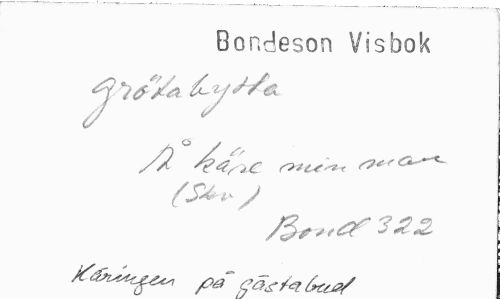 Bondeson Visbok
grötabytta
Å käre min man
(Skv)
Bond 322
Käringen på gästabud